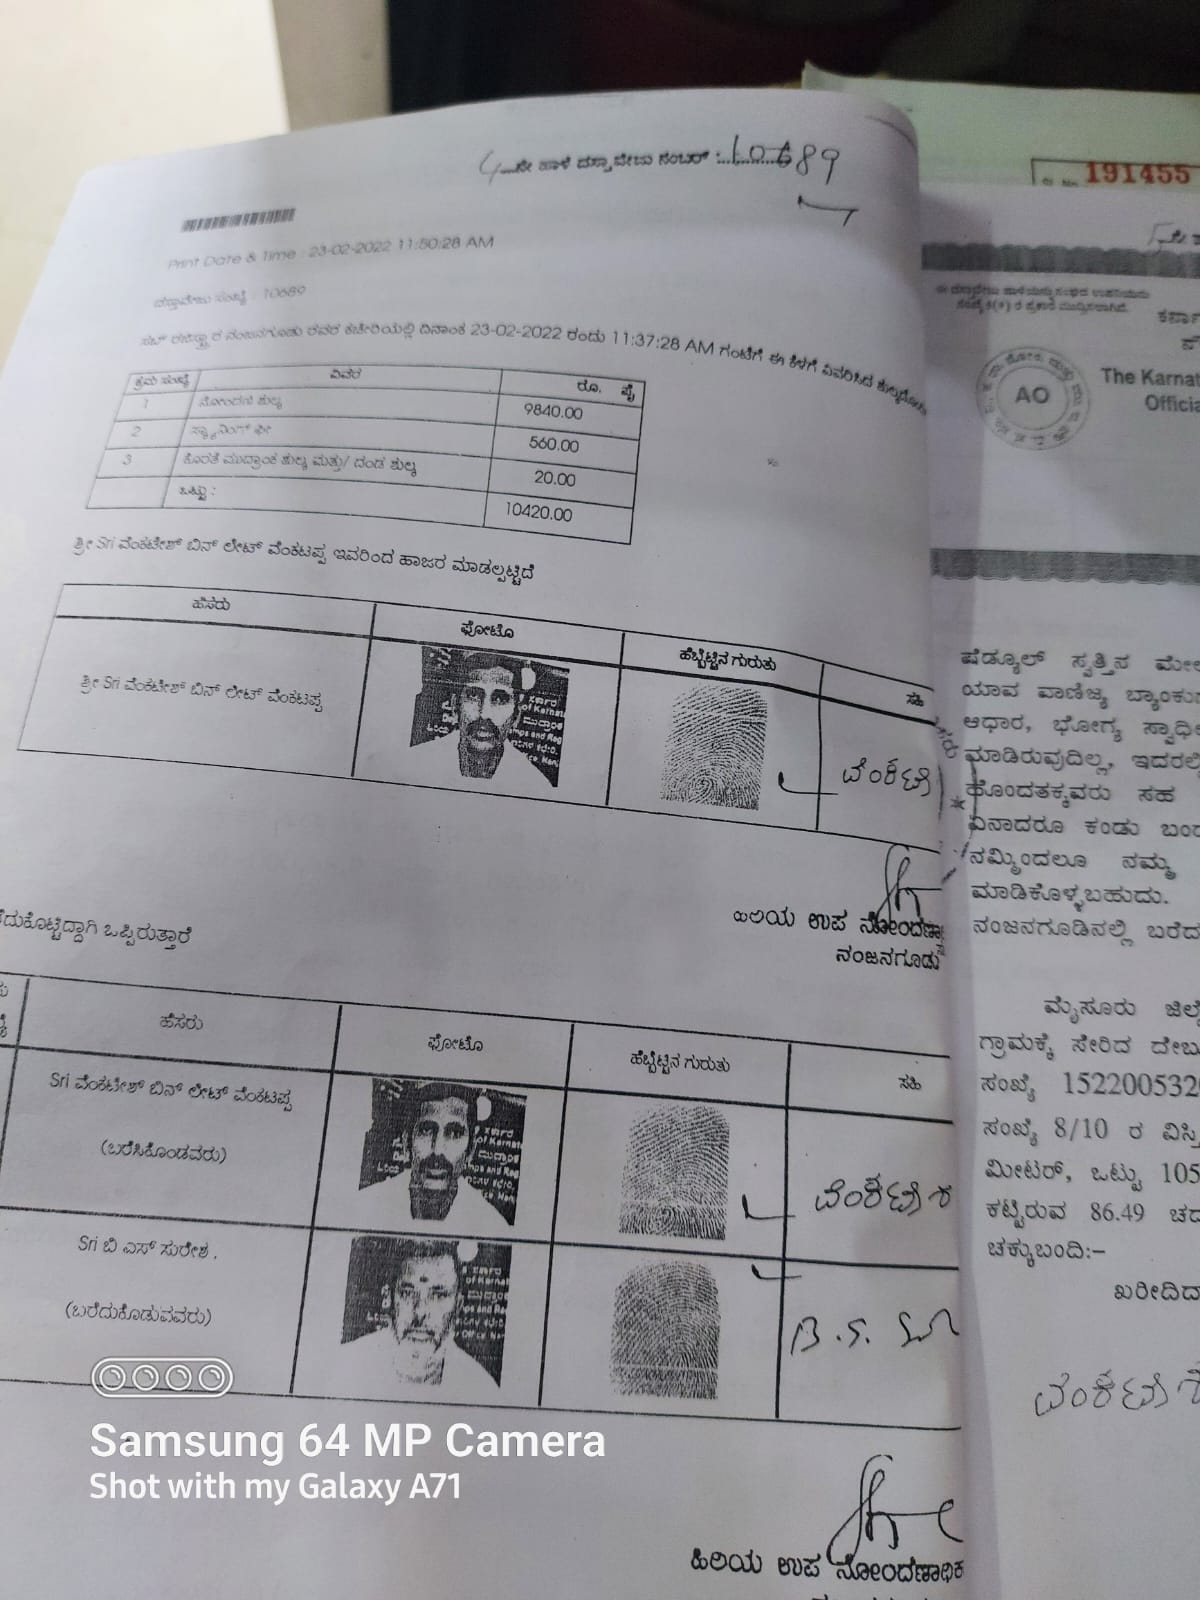 4 ನೇ ಹಾಳೆ ದಸ್ತಾವೇಜು ನಂಬರ್ : 10689
Print Date & Time : 23-02-2022 11:50:28 AM
ದಸ್ತಾವೇಜು ಸಂಖ್ಯೆ : 10689
ಸಬ್ ರಜಿಸ್ಟ್ರಾರ ನಂಜನಗೂಡು ರವರ ಕಚೇರಿಯಲ್ಲಿ ದಿನಾಂಕ 23-02-2022 ರಂದು 11:37:28 AM ಗಂಟೆಗೆ ಈ ಕೆಳಗೆ ವಿವರಿಸಿದ ಶುಲ್ಕದೊಂದಿಗೆ
ಕ್ರಮ ಸಂಖ್ಯೆ ವಿವರ ರೂ. ಪೈ
1 ನೋಂದಣಿ ಶುಲ್ಕ 9840.00
2 ಸ್ಕ್ಯಾನಿಂಗ್ ಫೀ 560.00
3 ಕೊರತೆ ಮುದ್ರಾಂಕ ಶುಲ್ಕ ಮತ್ತು/ ದಂಡ ಶುಲ್ಕ 20.00
ಒಟ್ಟು : 10420.00
ಶ್ರೀ Sri ವೆಂಕಟೇಶ್ ಬಿನ್ ಲೇಟ್ ವೆಂಕಟಪ್ಪ ಇವರಿಂದ ಹಾಜರ ಮಾಡಲ್ಪಟ್ಟಿದೆ
ಹೆಸರು ಫೋಟೊ ಹೆಬ್ಬೆಟ್ಟಿನ ಗುರುತು ಸಹಿ
ಶ್ರೀ Sri ವೆಂಕಟೇಶ್ ಬಿನ್ ಲೇಟ್ ವೆಂಕಟಪ್ಪ ವೆಂಕಟೇ
ಹಿರಿಯ ಉಪ ನೋಂದಣಾ
ನಂಜನಗೂಡು
ದುಕೊಟ್ಟಿದ್ದಾಗಿ ಒಪ್ಪಿರುತ್ತಾರೆ
ಹೆಸರು ಫೋಟೊ ಹೆಬ್ಬೆಟ್ಟಿನ ಗುರುತು ಸಹಿ
Sri ವೆಂಕಟೇಶ್ ಬಿನ್ ಲೇಟ್ ವೆಂಕಟಪ್ಪ
(ಬರೆಸಿಕೊಂಡವರು) ವೆಂಕಟೇಶ
Sri ಬಿ ಎಸ್ ಸುರೇಶ .
(ಬರೆದುಕೊಡುವವರು) B.S. ಸು
ಹಿರಿಯ ಉಪ ನೋಂದಣಾಧಿಕ
191455
The Karnat
Officia
AO
ಷೆಡ್ಯೂಲ್ ಸ್ವತ್ತಿನ ಮೇಲೆ
ಯಾವ ವಾಣಿಜ್ಯ ಬ್ಯಾಂಕು
ಆಧಾರ, ಭೋಗ್ಯ ಸ್ವಾಧೀ
ಮಾಡಿರುವುದಿಲ್ಲ, ಇದರಲ್ಲಿ
ಹೊಂದತಕ್ಕವರು ಸಹ
ಏನಾದರೂ ಕಂಡು ಬಂದ
ನಮ್ಮಿಂದಲೂ ನಮ್ಮ
ಮಾಡಿಕೊಳ್ಳಬಹುದು.
ನಂಜನಗೂಡಿನಲ್ಲಿ ಬರೆದ
ಮೈಸೂರು ಜಿಲ್ಲೆ
ಗ್ರಾಮಕ್ಕೆ ಸೇರಿದ ದೇಬೂ
ಸಂಖ್ಯೆ 1522005320
ಸಂಖ್ಯೆ 8/10 ರ ವಿಸ್ತಿ
ಮೀಟರ್, ಒಟ್ಟು 105
ಕಟ್ಟಿರುವ 86.49 ಚದ
ಚಕ್ಕುಬಂದಿ:-
ಖರೀದಿದಾ
ವೆಂಕಟೇಶ
Samsung 64 MP Camera
Shot with my Galaxy A71